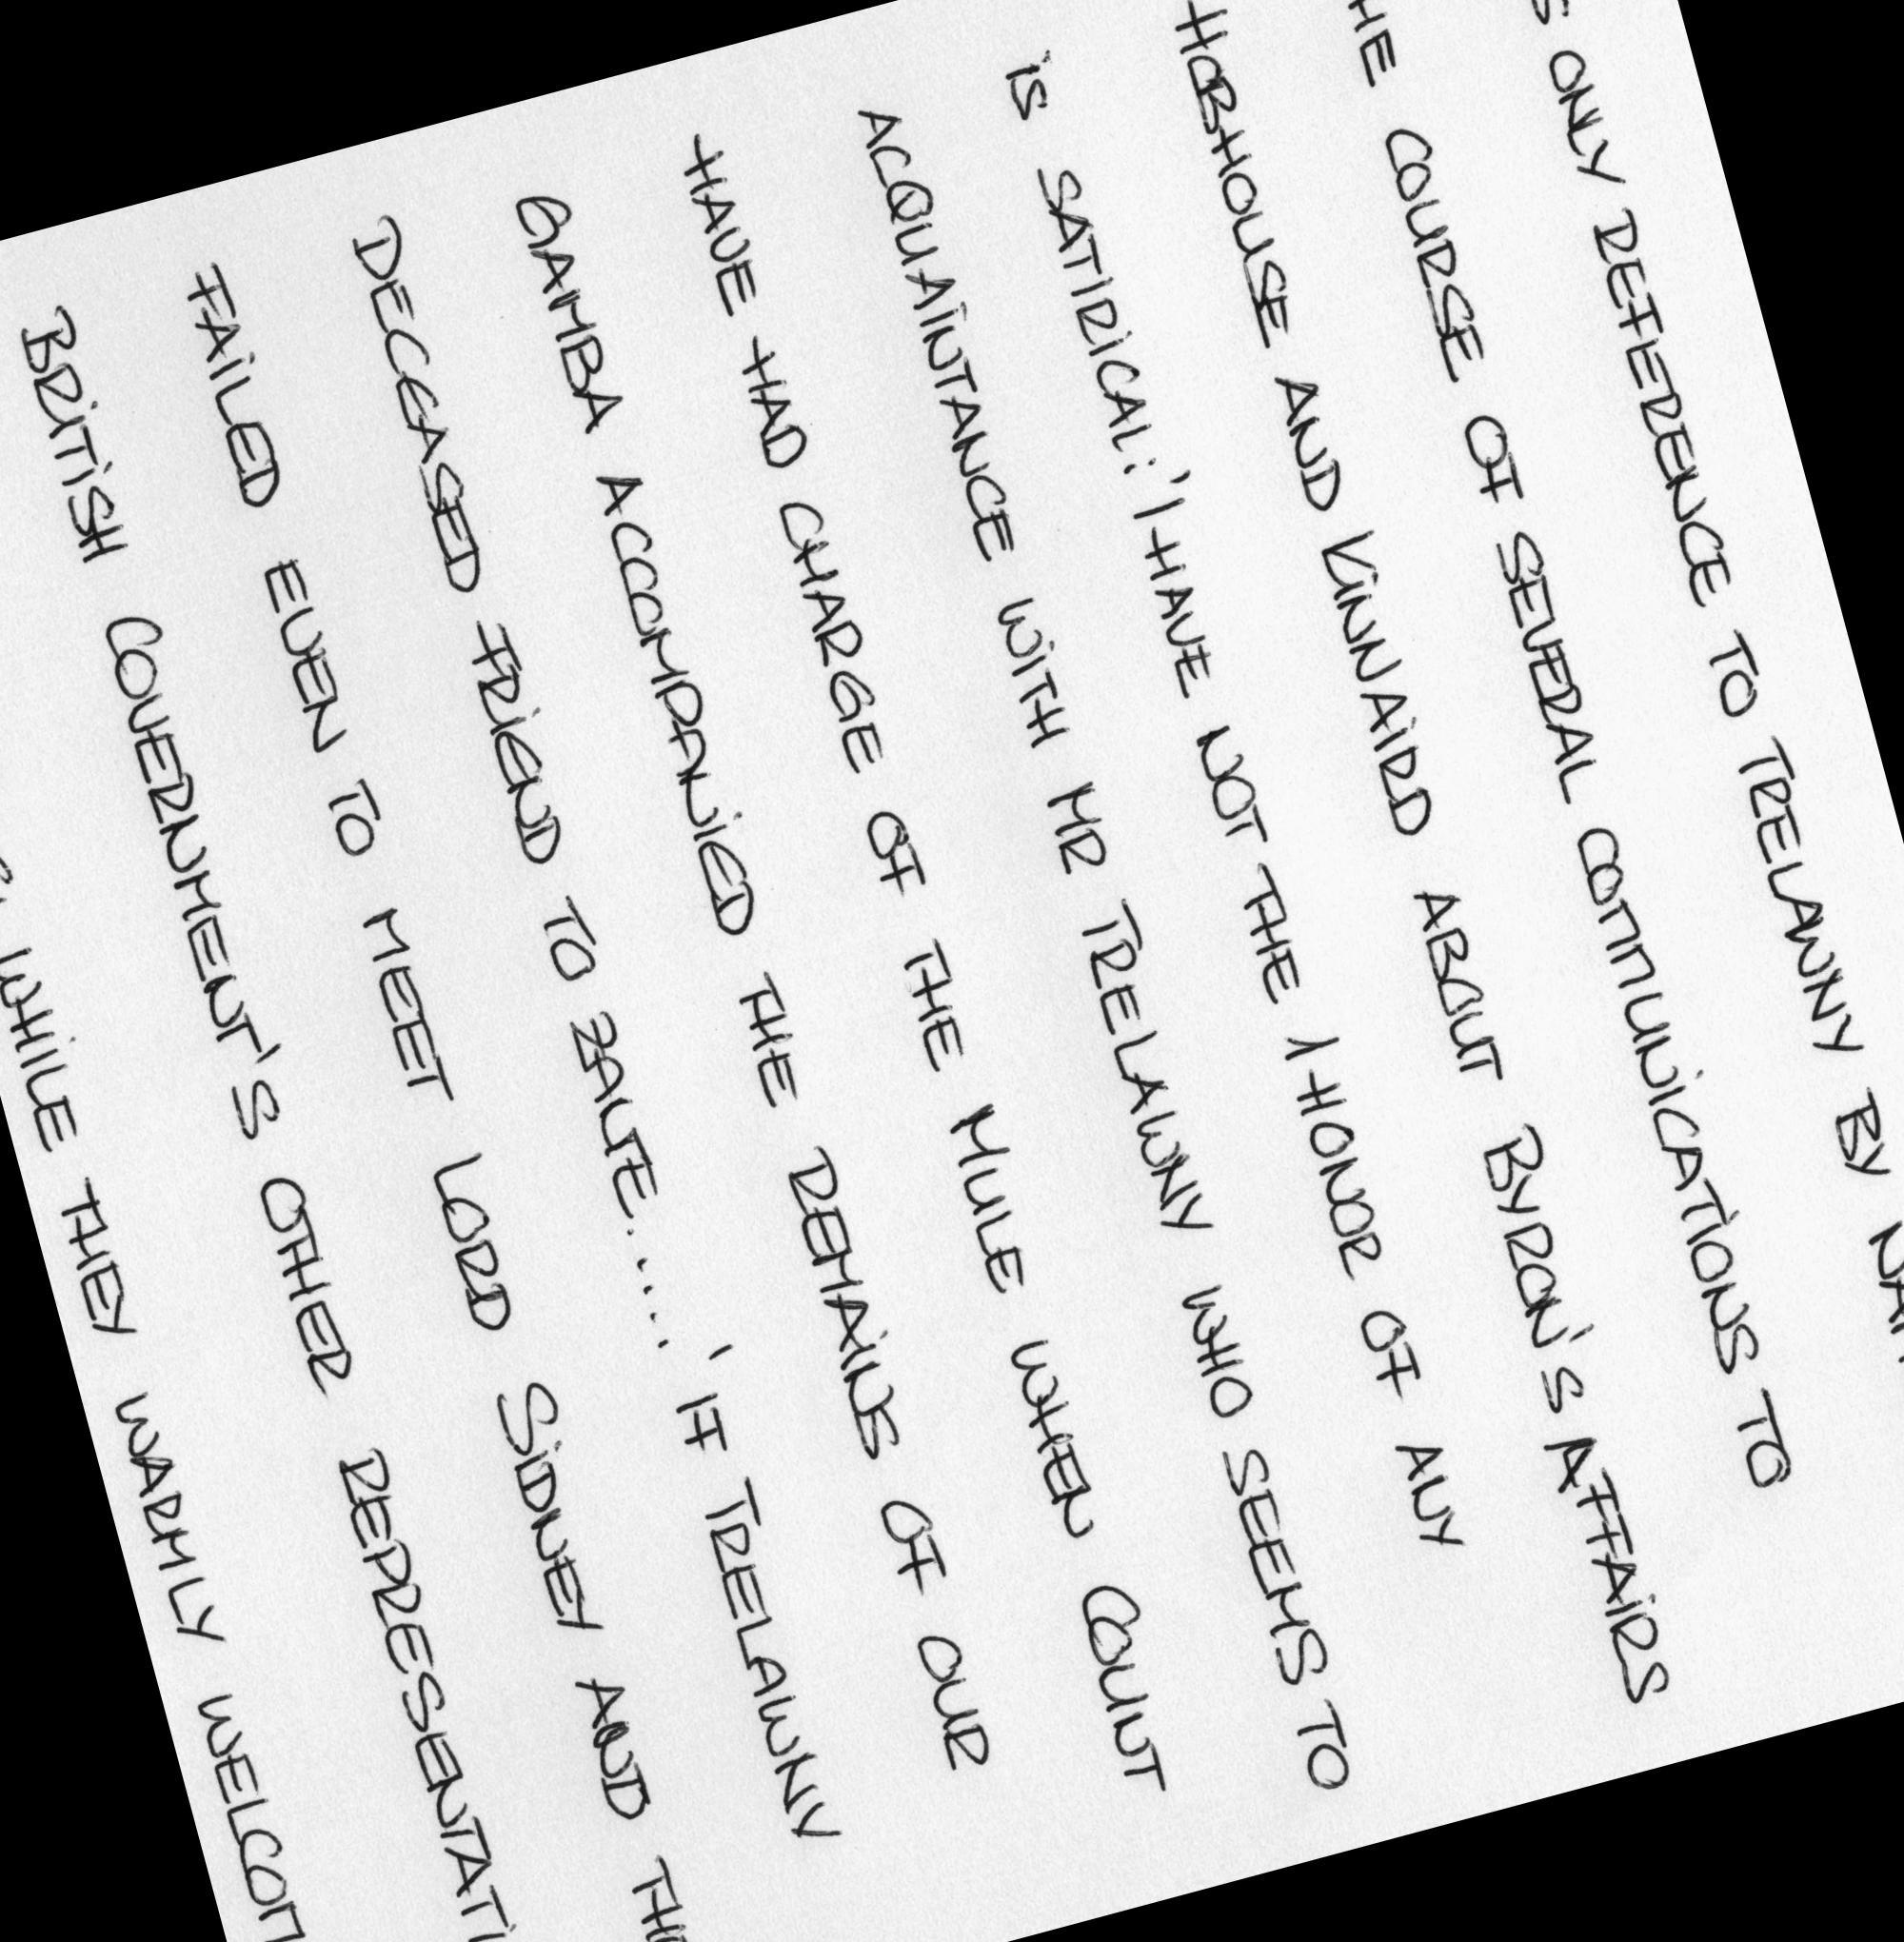 ONLY DEFERENCE TO TRELAWNY BY
COURSE OF SEVERAL COMMUNICATIONS TO
HOBHOUSE AND KINNAIRD ABOUT BYRON'S AFFAIRS
IS SATIRICAL: 'I HAVE NOT THE HONOR OF ANY
ACQUAINTANCE WITH MR TRELAWNY WHO SEEMS TO
HAVE HAD CHARGE OF THE MULE WHEN COUNT
GAMBA ACCOMPANIED THE REMAINS OF OUR
DECEASED FRIEND TO ZANTE.....' IF TRELAWNY
FAILED EVEN TO MEET LORD SIDNEY AND
BRITISH GOVERNMENT'S OTHER
WHILE THEY WARMLY